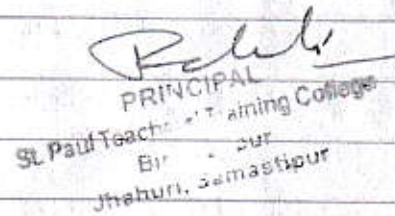 PRINCIPAL
St. Paul Teachers' Training College
Jhahuri, Samastipur